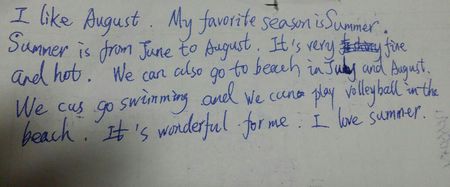 I like August. My favorite season is Summer.
Summer is from June to August. It's very fine
and hot. We can also go to beach in July and August.
We cus go swimming and we can play volleyball in the
beach. It's wonderful for me. I love summer.